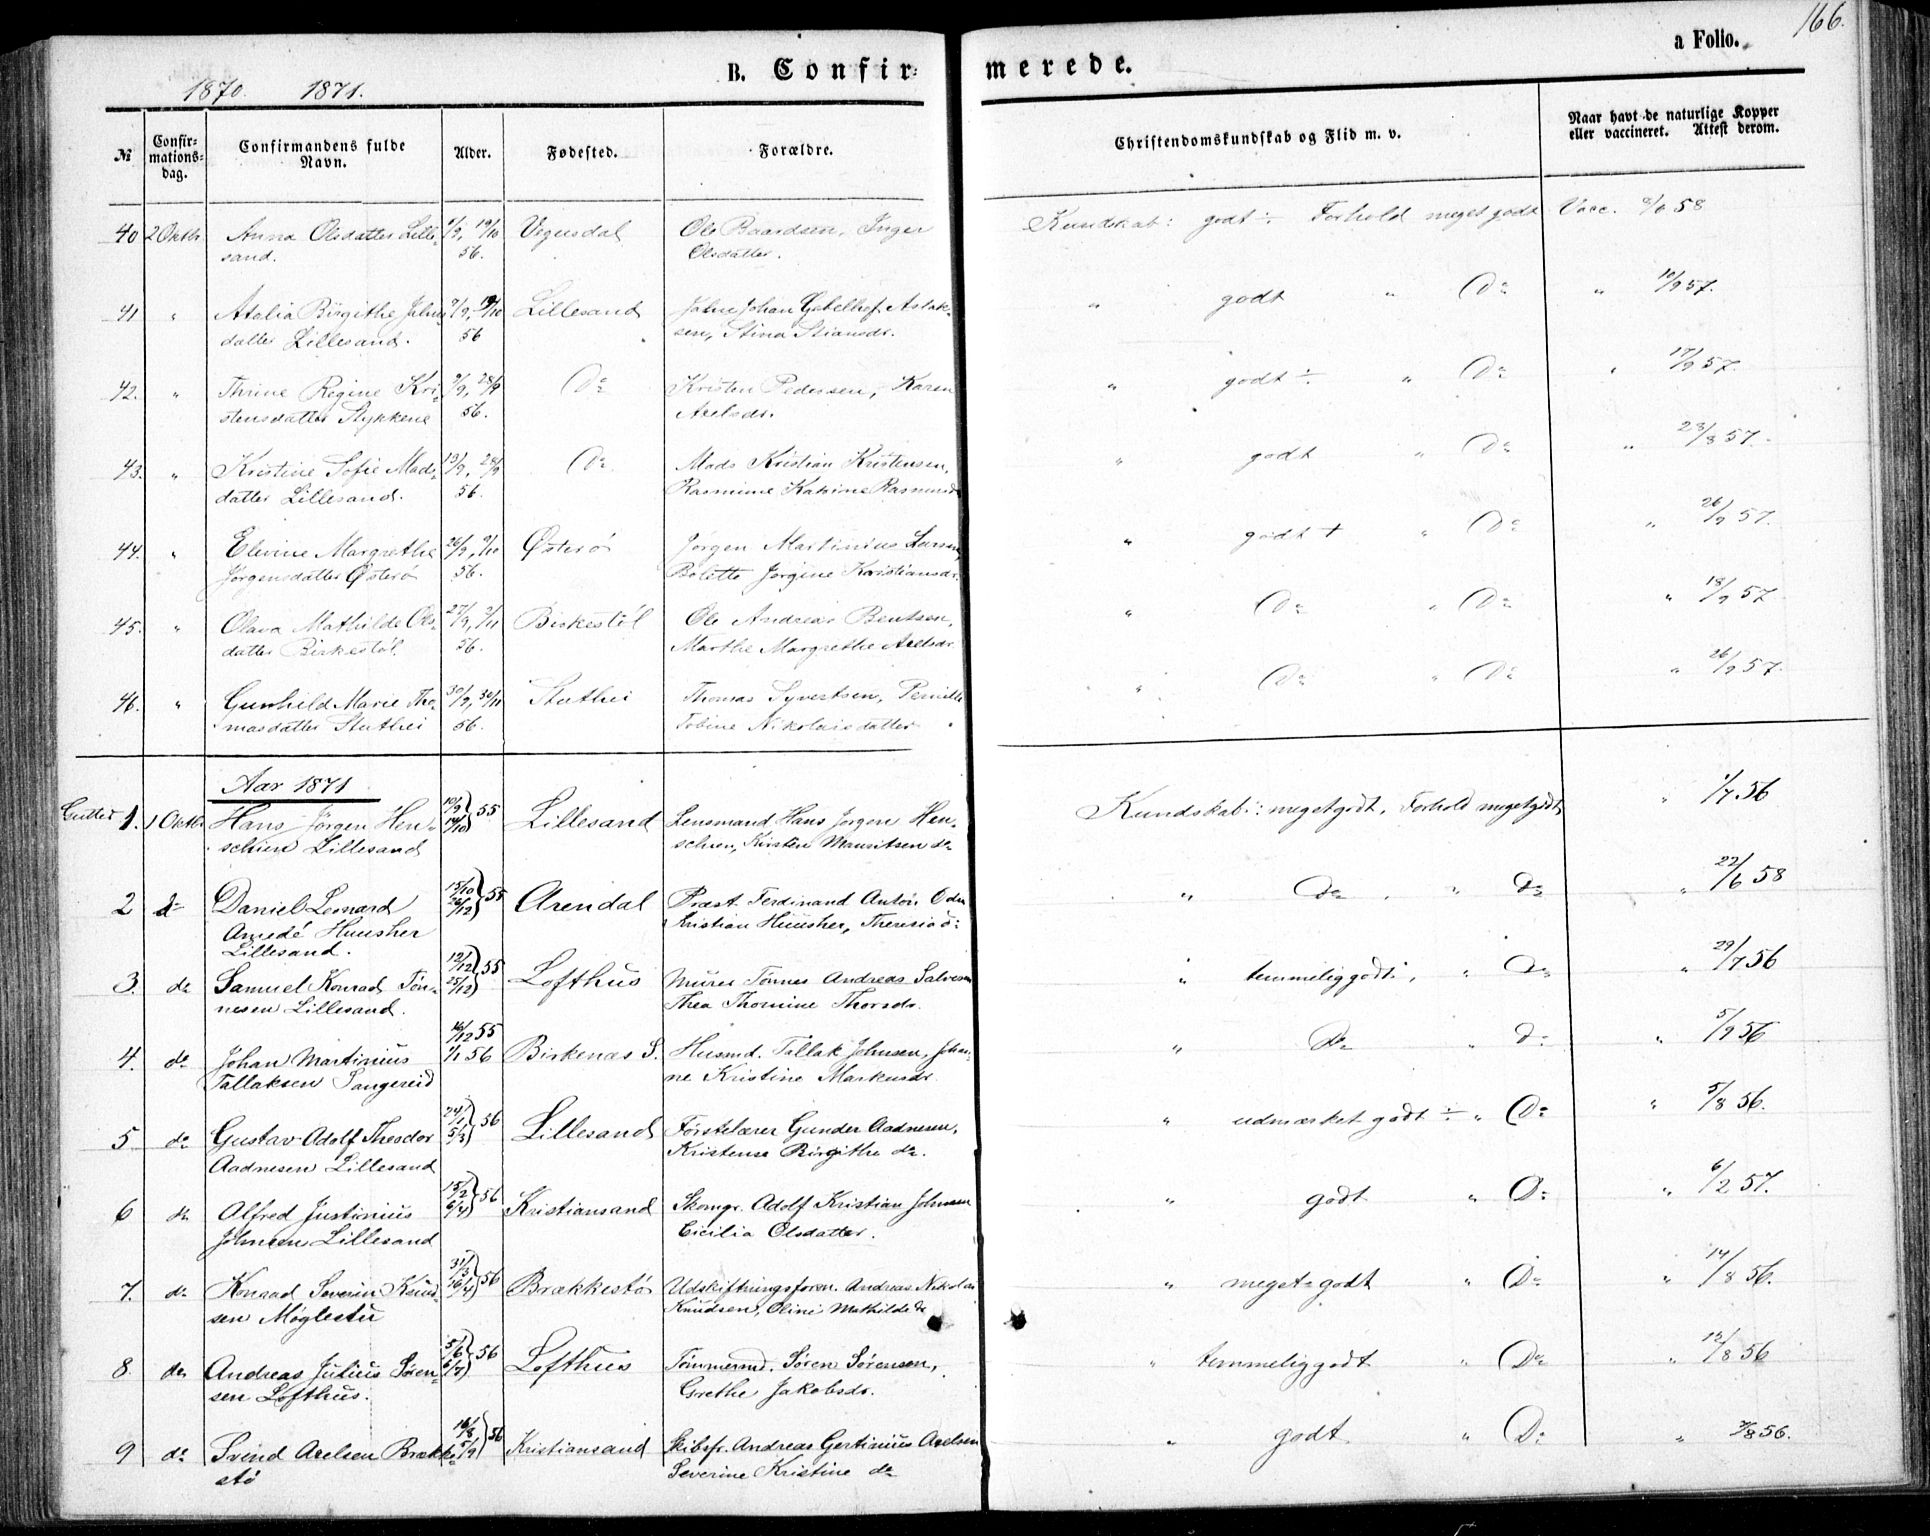 166.
a Folio.
1870. 1871.
B. Confirmerede.
№ Confirmations-dag. Confirmandens fulde Navn. Alder. Fødested. Forældre. Christendomskundskab og Flid m. v. Naar havt de naturlige Kopper eller vaccineret. Attest derom.
40 2 Oktbr Anna Olsdatter Lille- 19/10 Vegusdal Ole Baardsen, Inger Kundskab: godt ÷ Forhold meget godt Vacc. 8/6 58
sand. 56. Olsdatter.
41 " Atalia Birgithe Johns 9/9, 19/10 Lillesand Johan Gabelhof Aslak- " godt " Do " 10/9 57.
datter Lillesand. 56 sen, Stina Stiansdr.
42. " Thrine Regine Kri- 9/9, 28/9 Do Kristen Pedersen, Karen " godt ÷ " Do " 17/9 57.
stensdatter Stykkene 56. Axelsdr.
43. " Kristine Sofie Mads- 13/9, 28/9 Do Mads Kristian Kristensen, " godt " Do " 28/8 57.
datter Lillesand. 56. Rasmine Katrine Rasmusd
44. " Elevine Margrethe 26/9, 9/10 Østerø Jørgen Martinius Larsen, " godt + " Do " 26/9 57.
Jørgensdatter Østerø 56. Bolette Jørgine Kristiansdr.
45. " Olava Mathilde Ols- 27/9, 2/11 Birkestøl Ole Andreas Bentsen, " Do " Do " 18/9 57
datter Birkestøl. 56. Marthe Margrethe Axelsdr.
46. " Gunhild Marie Tho- 30/9, 30/11 Stuthei Thomas Syvertsen, Pernille " Do " Do " 26/9 57.
masdatter Stuthei 56. Tobine Nikolaisdatter
Aar 1871
Gutter 1. 1 Oktbr Hans Jørgen Hen- 10/9 14/10 55 Lillesand Lensmand Hans Jørgen Hen- Kundskab: meget godt, Forhold meget godt " 1/7 56
schien Lillesand schien, Kirsten Mauritsen do
2 do Daniel Leonard 15/10 26/12 55 Arendal Præst Ferdinand Anton " Do " do " 22/6 58
Amedé Huusher Kristian Huusher, Theresia do
Lillesand.
3. do Samuel Konrad Tøn- 12/12 25/12 55 Lofthus Murer Tønnes Andreas Salvesen " temmelig godt, " Do " 29/7 56
nesen Lillesand. Thea Thomine Thorsdr.
4. do Johan Martinius 16/12 55 Birkenæs S. Husmd. Tallak Johnsen, Johan- " Do " do " 5/9 56
Tallaksen Sangereid 1/1 56 ne Kristine Markusdr.
5 do Gustav Adolf Theodor 24/1 5/3 56 Lillesand Førstelærer Gunder Aadnesen, " udmærket godt ÷ " Do " 5/8 56.
Aadnesen Lillesand Kristense Birgithe do.
6 do Alfred Justinius 15/2 6/4 56 Kristiansand Skomgr. Adolf Kristian Johnsen " godt " Do " 6/2 57.
Johnsen Lillesand Cicilia Olsdatter.
7. do Konrad Severin Knud- 31/3 16/4 56 Brækkestø Udskiftningsform. Andreas Nikolai " meget godt " Do " 14/8 56.
sen Møglestu Knudsen, Oline Mathilde do
8 do Andreas Julius Søren- 5/6 6/7 56 Lofthus Tømmermd. Søren Sørensen, " temmelig godt " Do " 12/8 56
sen Lofthus. Grethe Jakobsdr.
9 do Svend Axelsen Brække- 16/8 5/9 56 Kristiansand Skibsfr. Andreas Gertinius Axelsen " godt " Do " 3/8 56.
stø Severine Kristine do